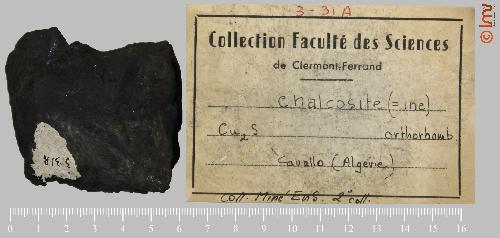 3-31A
Collection Faculté des Sciences
de Clermont-Ferrand
Chalcosite (=ine)
Cu2S orthorhomb.
Cavallo (Algérie)
Coll. Miné Ens. 2e coll.
3.31A
0 1 2 3 4 5 6 7 8 9 10 11 12 13 14 15 16